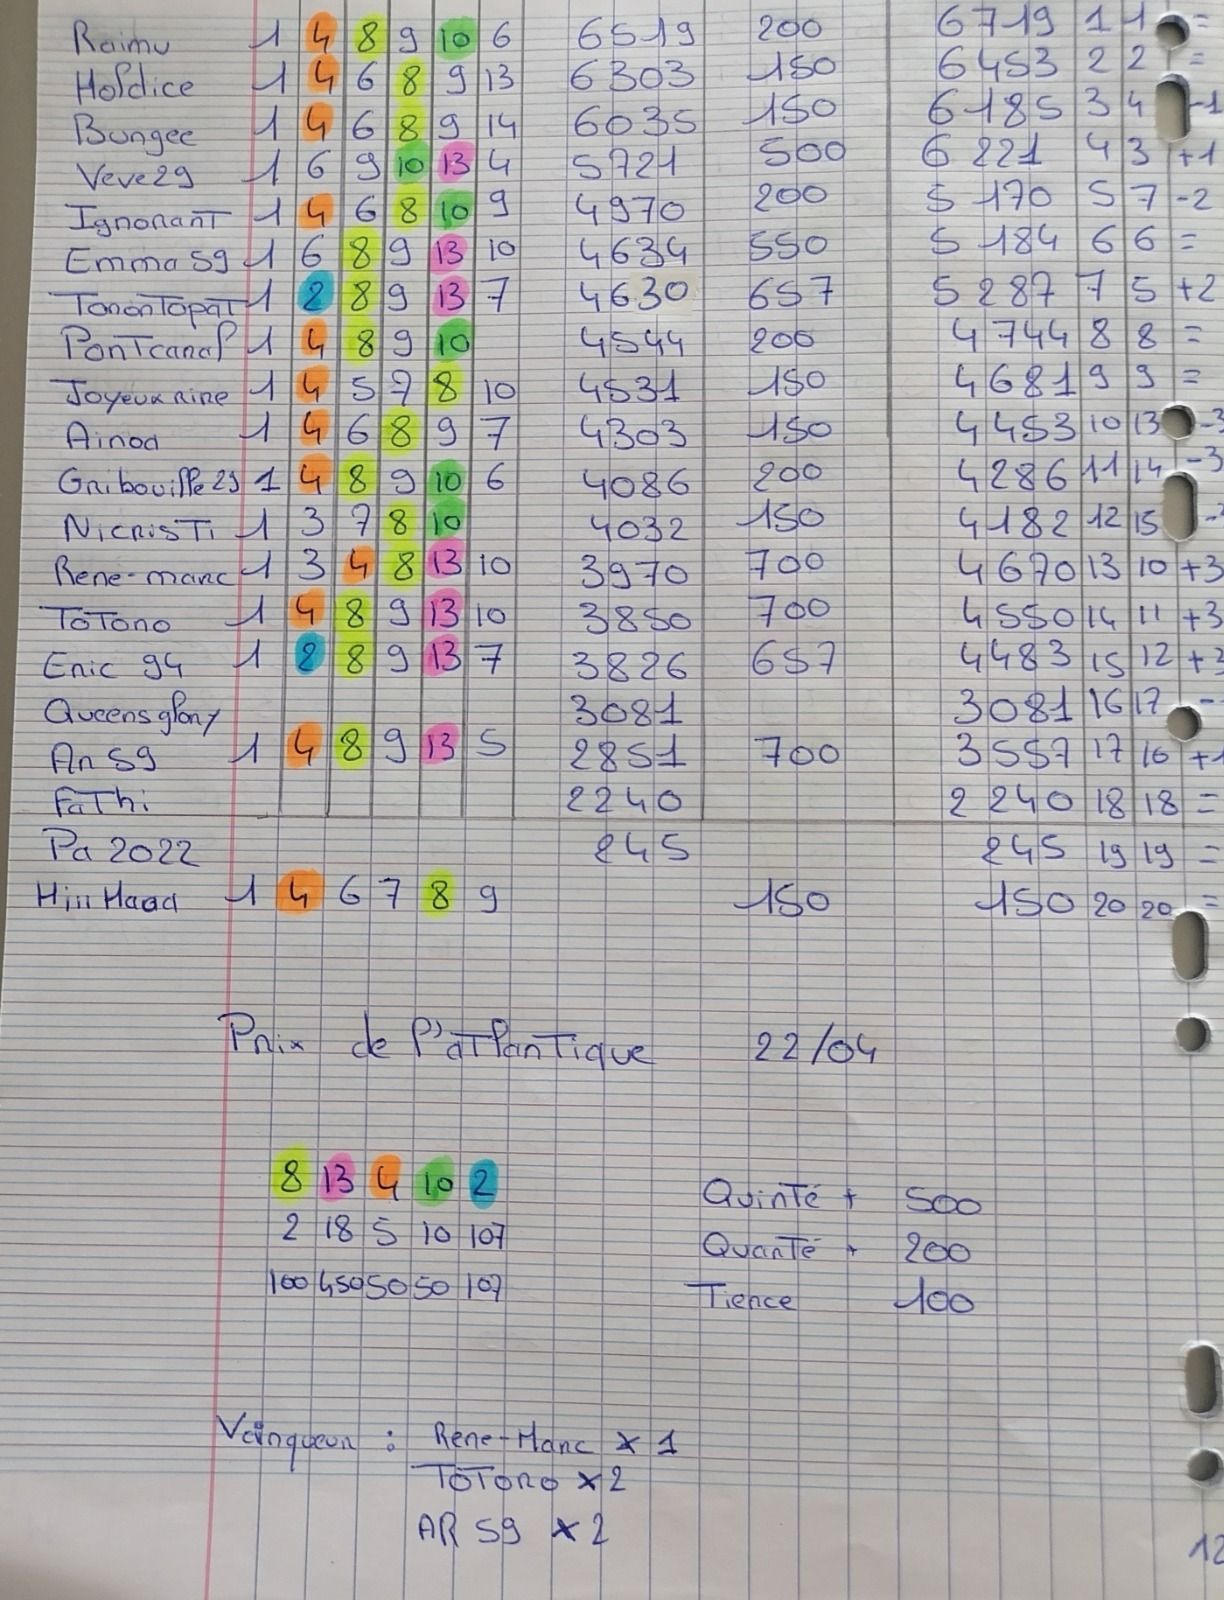 Raimu 1 4 8 9 10 6 6519 200 6719 1 1 =
Holdice 1 4 6 8 9 13 6303 150 6453 2 2 =
Bungee 1 4 6 8 9 14 6035 150 6185 3 4 -1
Veve29 1 6 9 10 13 4 5721 500 6221 4 3 +1
Ignorant 1 4 6 8 10 9 4970 200 5170 5 7 -2
Emma 59 1 6 8 9 13 10 4634 550 5184 6 6 =
Tonontopat 1 2 8 9 13 7 4630 657 5287 7 5 +2
Pontcanal 1 4 8 9 10 4544 200 4744 8 8 =
Joyeux rire 1 4 5 7 8 10 4531 150 4681 9 9 =
Ainoa 1 4 6 8 9 7 4303 150 4453 10 13 -3
Gribouille 29 1 4 8 9 10 6 4086 200 4286 11 14 -3
Nicristi 1 3 7 8 10 4032 150 4182 12 15
Rene-marc 1 3 4 8 13 10 3970 700 4670 13 10 +3
Totoro 1 4 8 9 13 10 3850 700 4550 14 11 +3
Eric 94 1 2 8 9 13 7 3826 657 4483 15 12 +3
Queensglory 3081 3081 16 17 -
Ar 59 1 4 8 9 13 5 2851 700 3557 17 16 +1
Fathi 2240 2240 18 18 =
Pa 2022 245 245 19 19 =
Hiii Haaa 1 4 6 7 8 9 150 150 20 20 =
Prix de l'atlantique 22/04
8 13 4 10 2
Quinté + 500
2 18 5 10 107
Quarté + 200
100 450 50 50 107
Tierce 100
Vainqueur : Rene-Marc x 1
Totoro x 2
AR 59 x 2
12